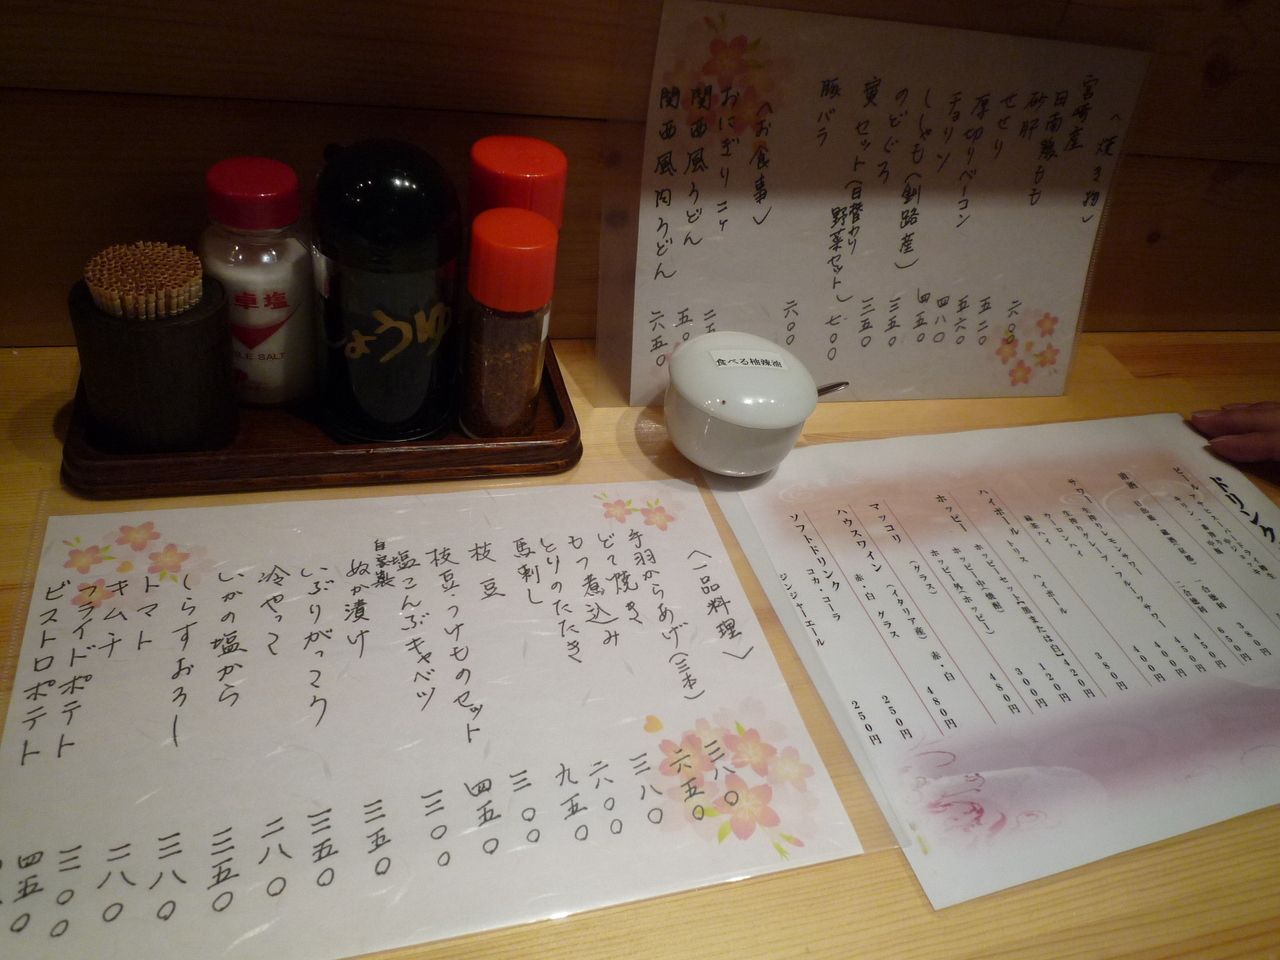 卓塩
TABLE SALT
しょうゆ
食べる柚辣油
〈焼き物〉
宮崎産
日南鶏もも
砂肝
せせり
厚切りベーコン
チョリソ
ししゃも(釧路産)
のどぐろ
セット(日替わり
野菜セット)
豚バラ
六〇〇
五二〇
五六〇
四八〇
四五〇
三五〇
三五〇
七〇〇
六〇〇
〈お食事〉
おにぎり二ヶ
関西風うどん
関西風肉うどん
六五〇
〈一品料理〉
手羽からあげ(三本)
どて焼き
もつ煮込み
とりのたたき
馬刺し
枝豆
枝豆・つけものセット
自家製
塩こんぶキャベツ
ぬか漬け
いぶりがっこ
冷やっこ
いかの塩から
しらすおろし
トマト
キムチ
フライドポテト
ビストロポテト
三八〇
六五〇
三八〇
六〇〇
九五〇
三〇〇
四五〇
三〇〇
三五〇
三五〇
二八〇
三五〇
三八〇
二八〇
三〇〇
四五〇
ドリンク
ビール
清酒
サワー
生搾りレモンサワー
生搾りグレープ・フルーツサワー
ウーロンハイ
緑茶ハイ
ハイボール
トリス ハイボール
ホッピー
ホッピーセット【黒または白】
ホッピー中(焼酎)
ホッピー外(ホッピー)
マッコリ
(グラス)
ハウスワイン
(イタリア産) 赤・白
赤・白 グラス
ソフトドリンク
コカ・コーラ
ジンジャーエール
380円
650円
450円
450円
400円
400円
380円
420円
120円
300円
480円
480円
250円
250円